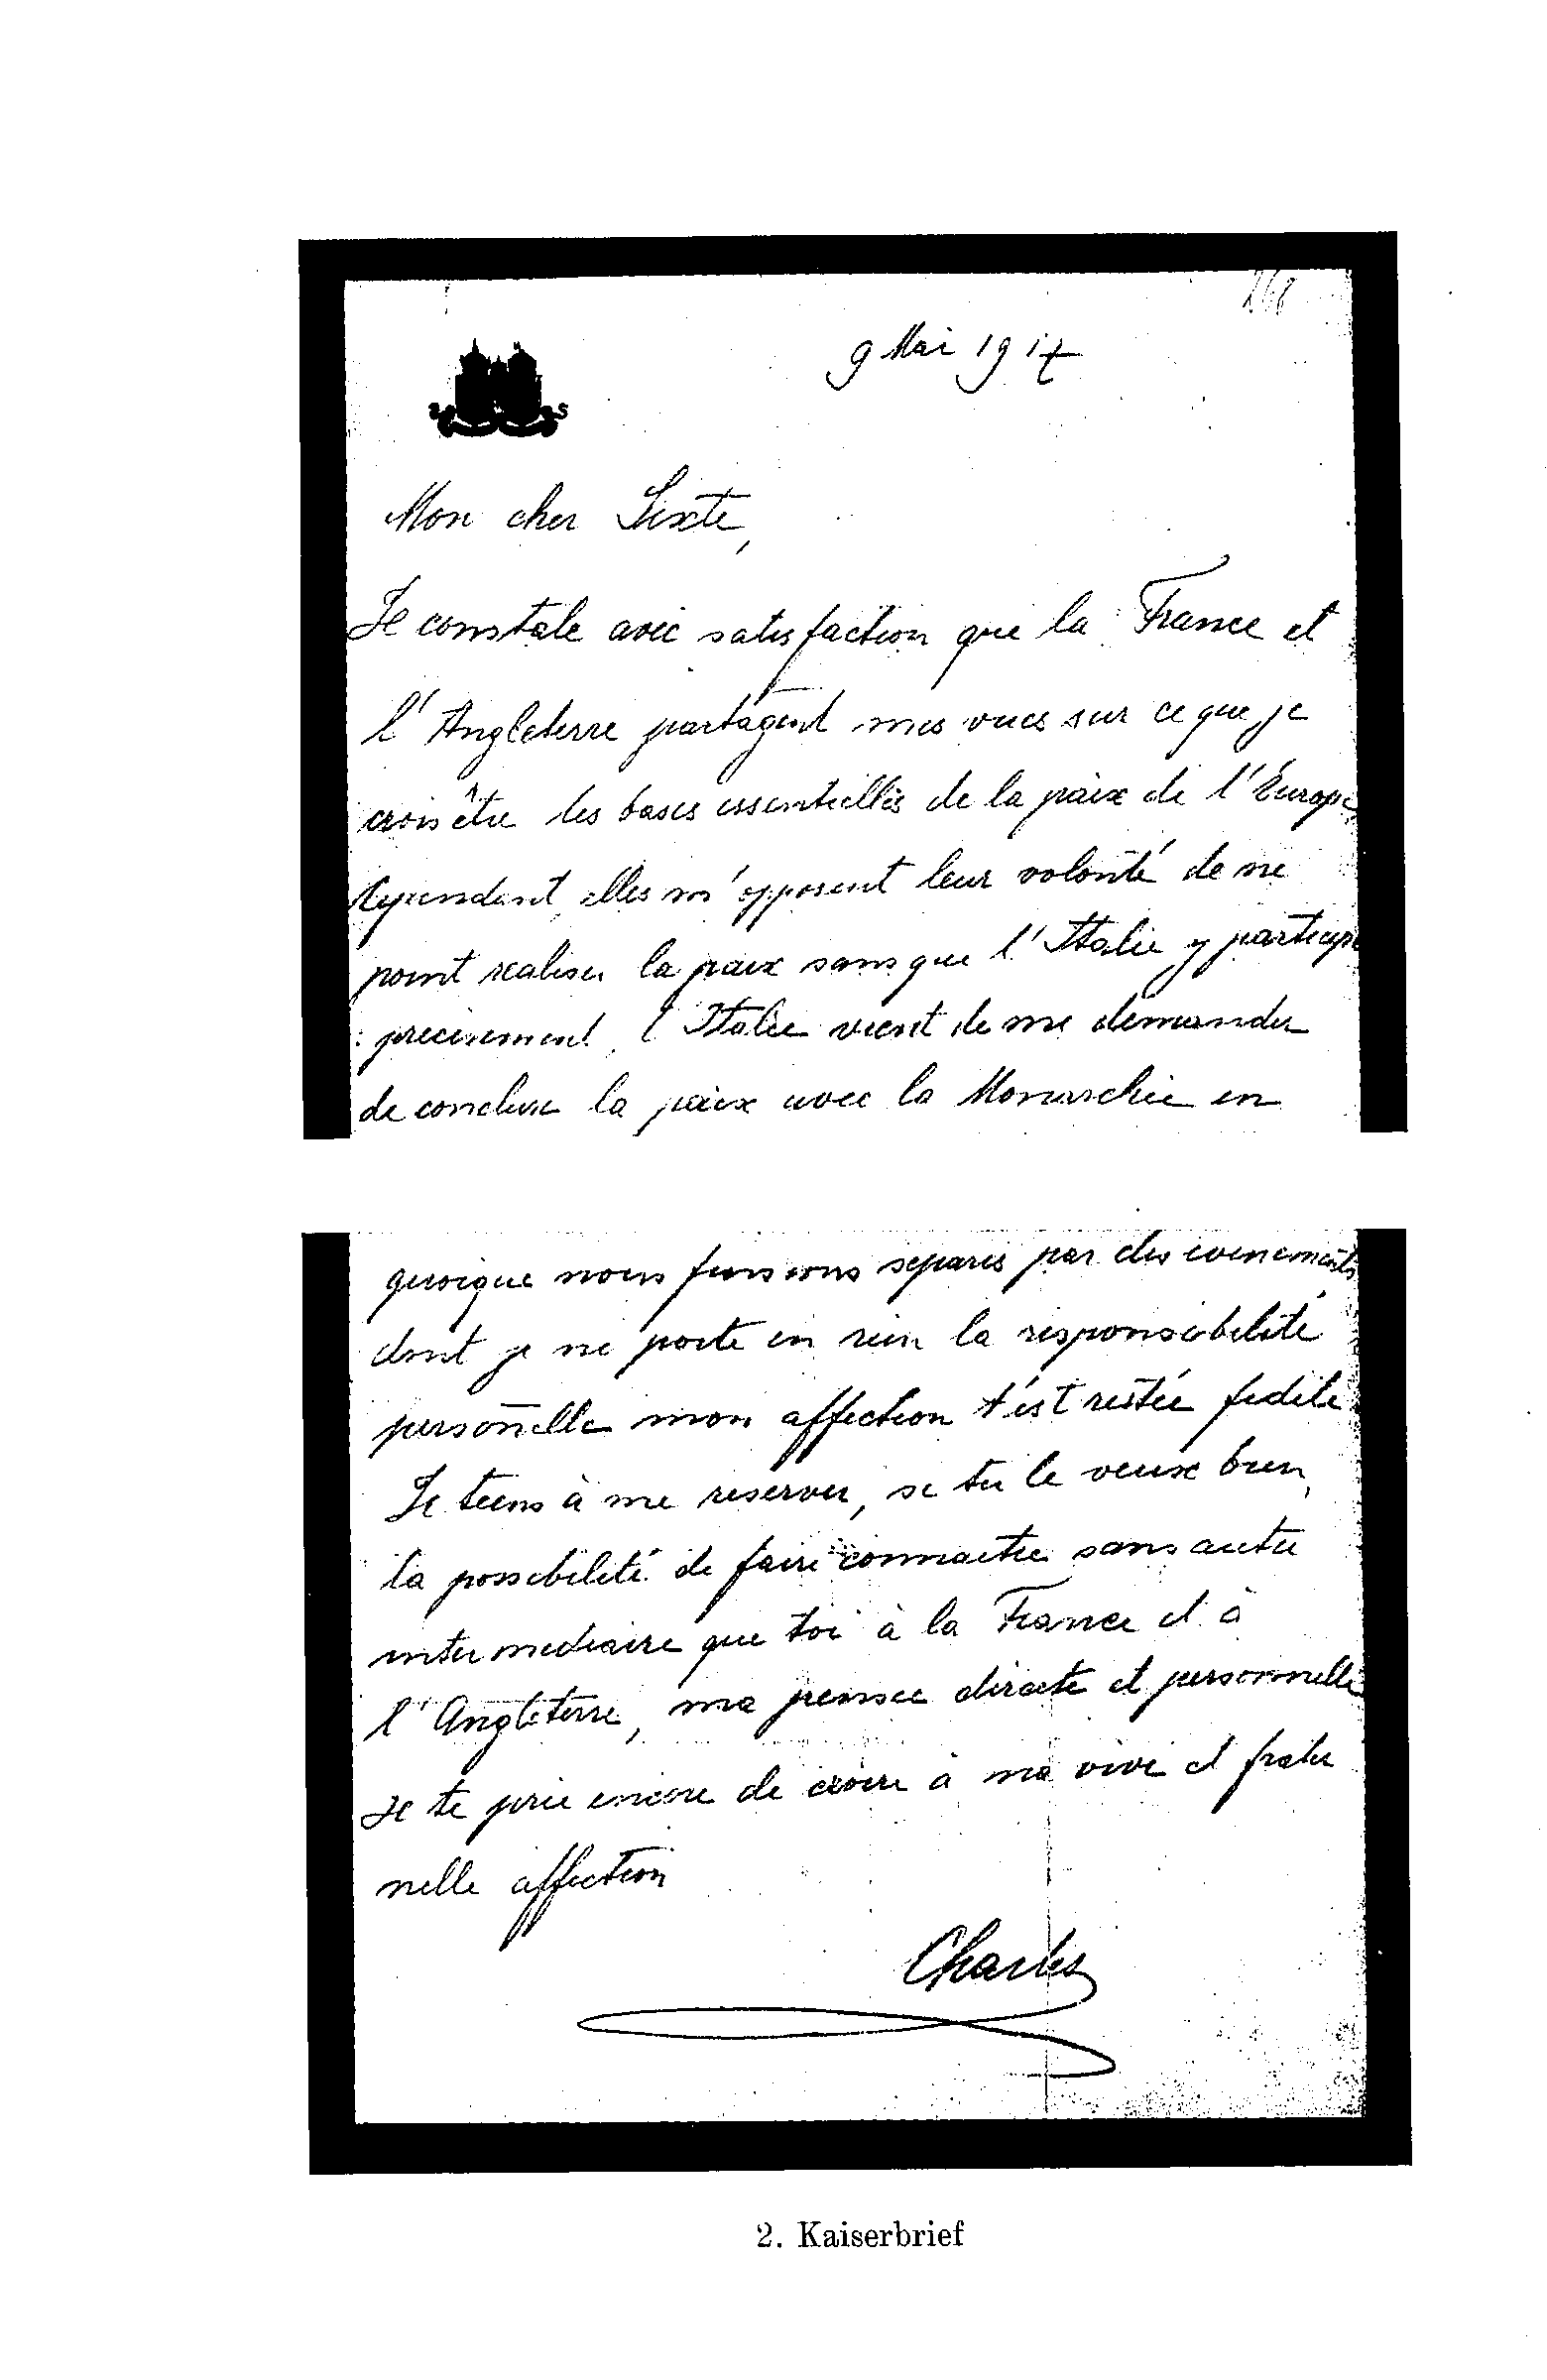 268
9 Mai 1917
Mon cher Sixte,
Je constate avec satisfaction que la France et
l'Angleterre partagent mes vues sur ce que je
crois être les bases essentielles de la paix de l'Europe
Cependant elles m'opposent leur volonté de ne
point realiser la paix sans que l'Italie y participe
: precisement, l'Italie vient de me demander
de conclure la paix avec la Monarchie en
quoique nous fussions separés par des evenements
dont je ne porte en rien la responsabilité
personelle mon affection t'est restée fidele
Je tiens à me reserver, si tu le veux bien,
la possibilité de faire connaitre sans autre
intermediaire que toi à la France et à
l'Angleterre, ma pensee directe et personnelle
Je te prie encore de croire à ma vive et frater
nelle affection
Charles
2. Kaiserbrief